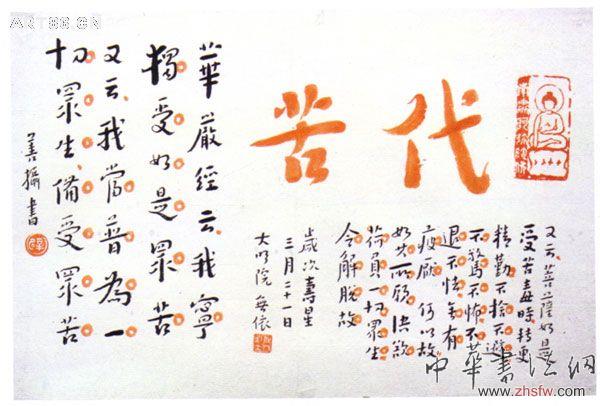 代苦
又云菩薩如是
受苦毒時轉更
精勤不捨不避
不驚不怖不
退不怯無有
疲厭何以故
如其所願決欲
荷負一切眾生
令解脫故
歲次壽星
三月二十一日
大明院無依
華嚴經云我寧
獨受如是眾苦
又云我當普為一
切眾生備受眾苦
善攝書
中華書法網
www.zhsfw.com